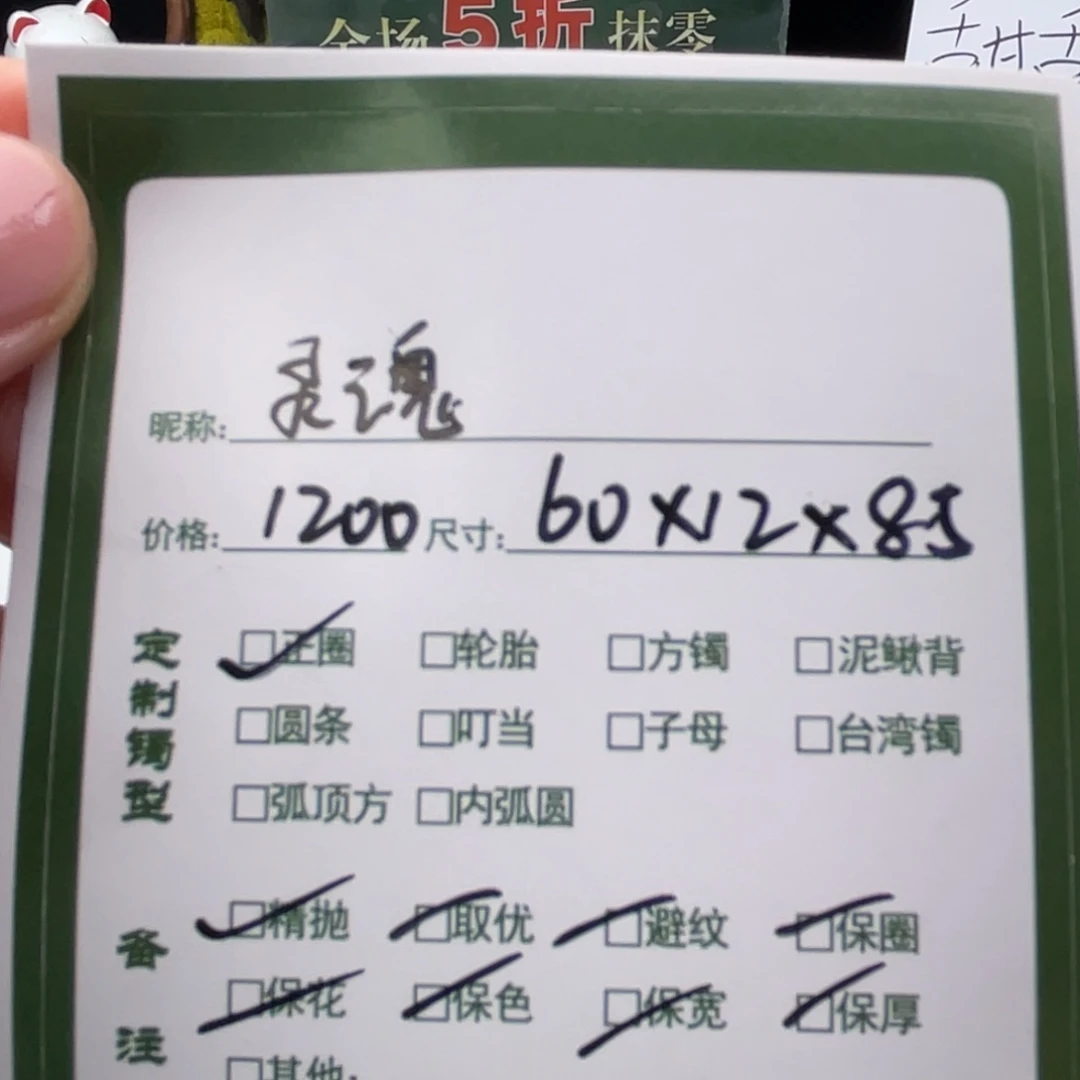 全场5折抹零
昵称: 灵魂
价格: 1200 尺寸: 60×12×85
定制镯型
☑正圈 □轮胎 □方镯 □泥鳅背
□圆条 □叮当 □子母 □台湾镯
□弧顶方 □内弧圆
备注
☑精抛 ☑取优 ☑避纹 ☑保圈
☑保花 ☑保色 ☑保宽 ☑保厚
□其他: